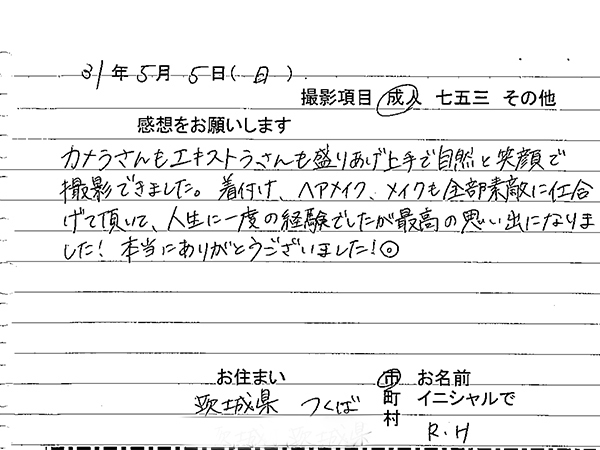 31年5月5日(日)
撮影項目 成人 七五三 その他
感想をお願いします
カメラさんもエキストラさんも盛りあげ上手で自然と笑顔で
撮影できました。着付け、ヘアメイク、メイクも全部素敵に仕合
げて頂いて、人生に一度の経験でしたが最高の思い出になりま
した！本当にありがとうございました！◎
お住まい 市 お名前
茨城県 つくば 町 イニシャルで
村 R.H